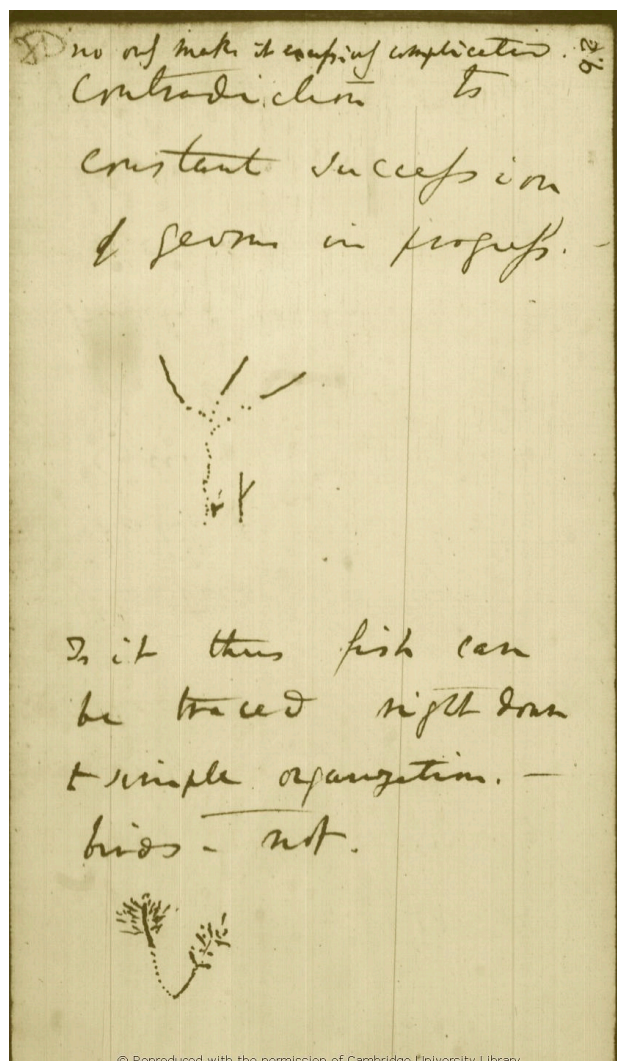 no only makes it excessively complicated.
26
Contradiction to
constant succession
of germs in progress. —
Is it thus fish can
be traced right down
to simple organization. —
birds — not.
© Reproduced with the permission of Cambridge University Library